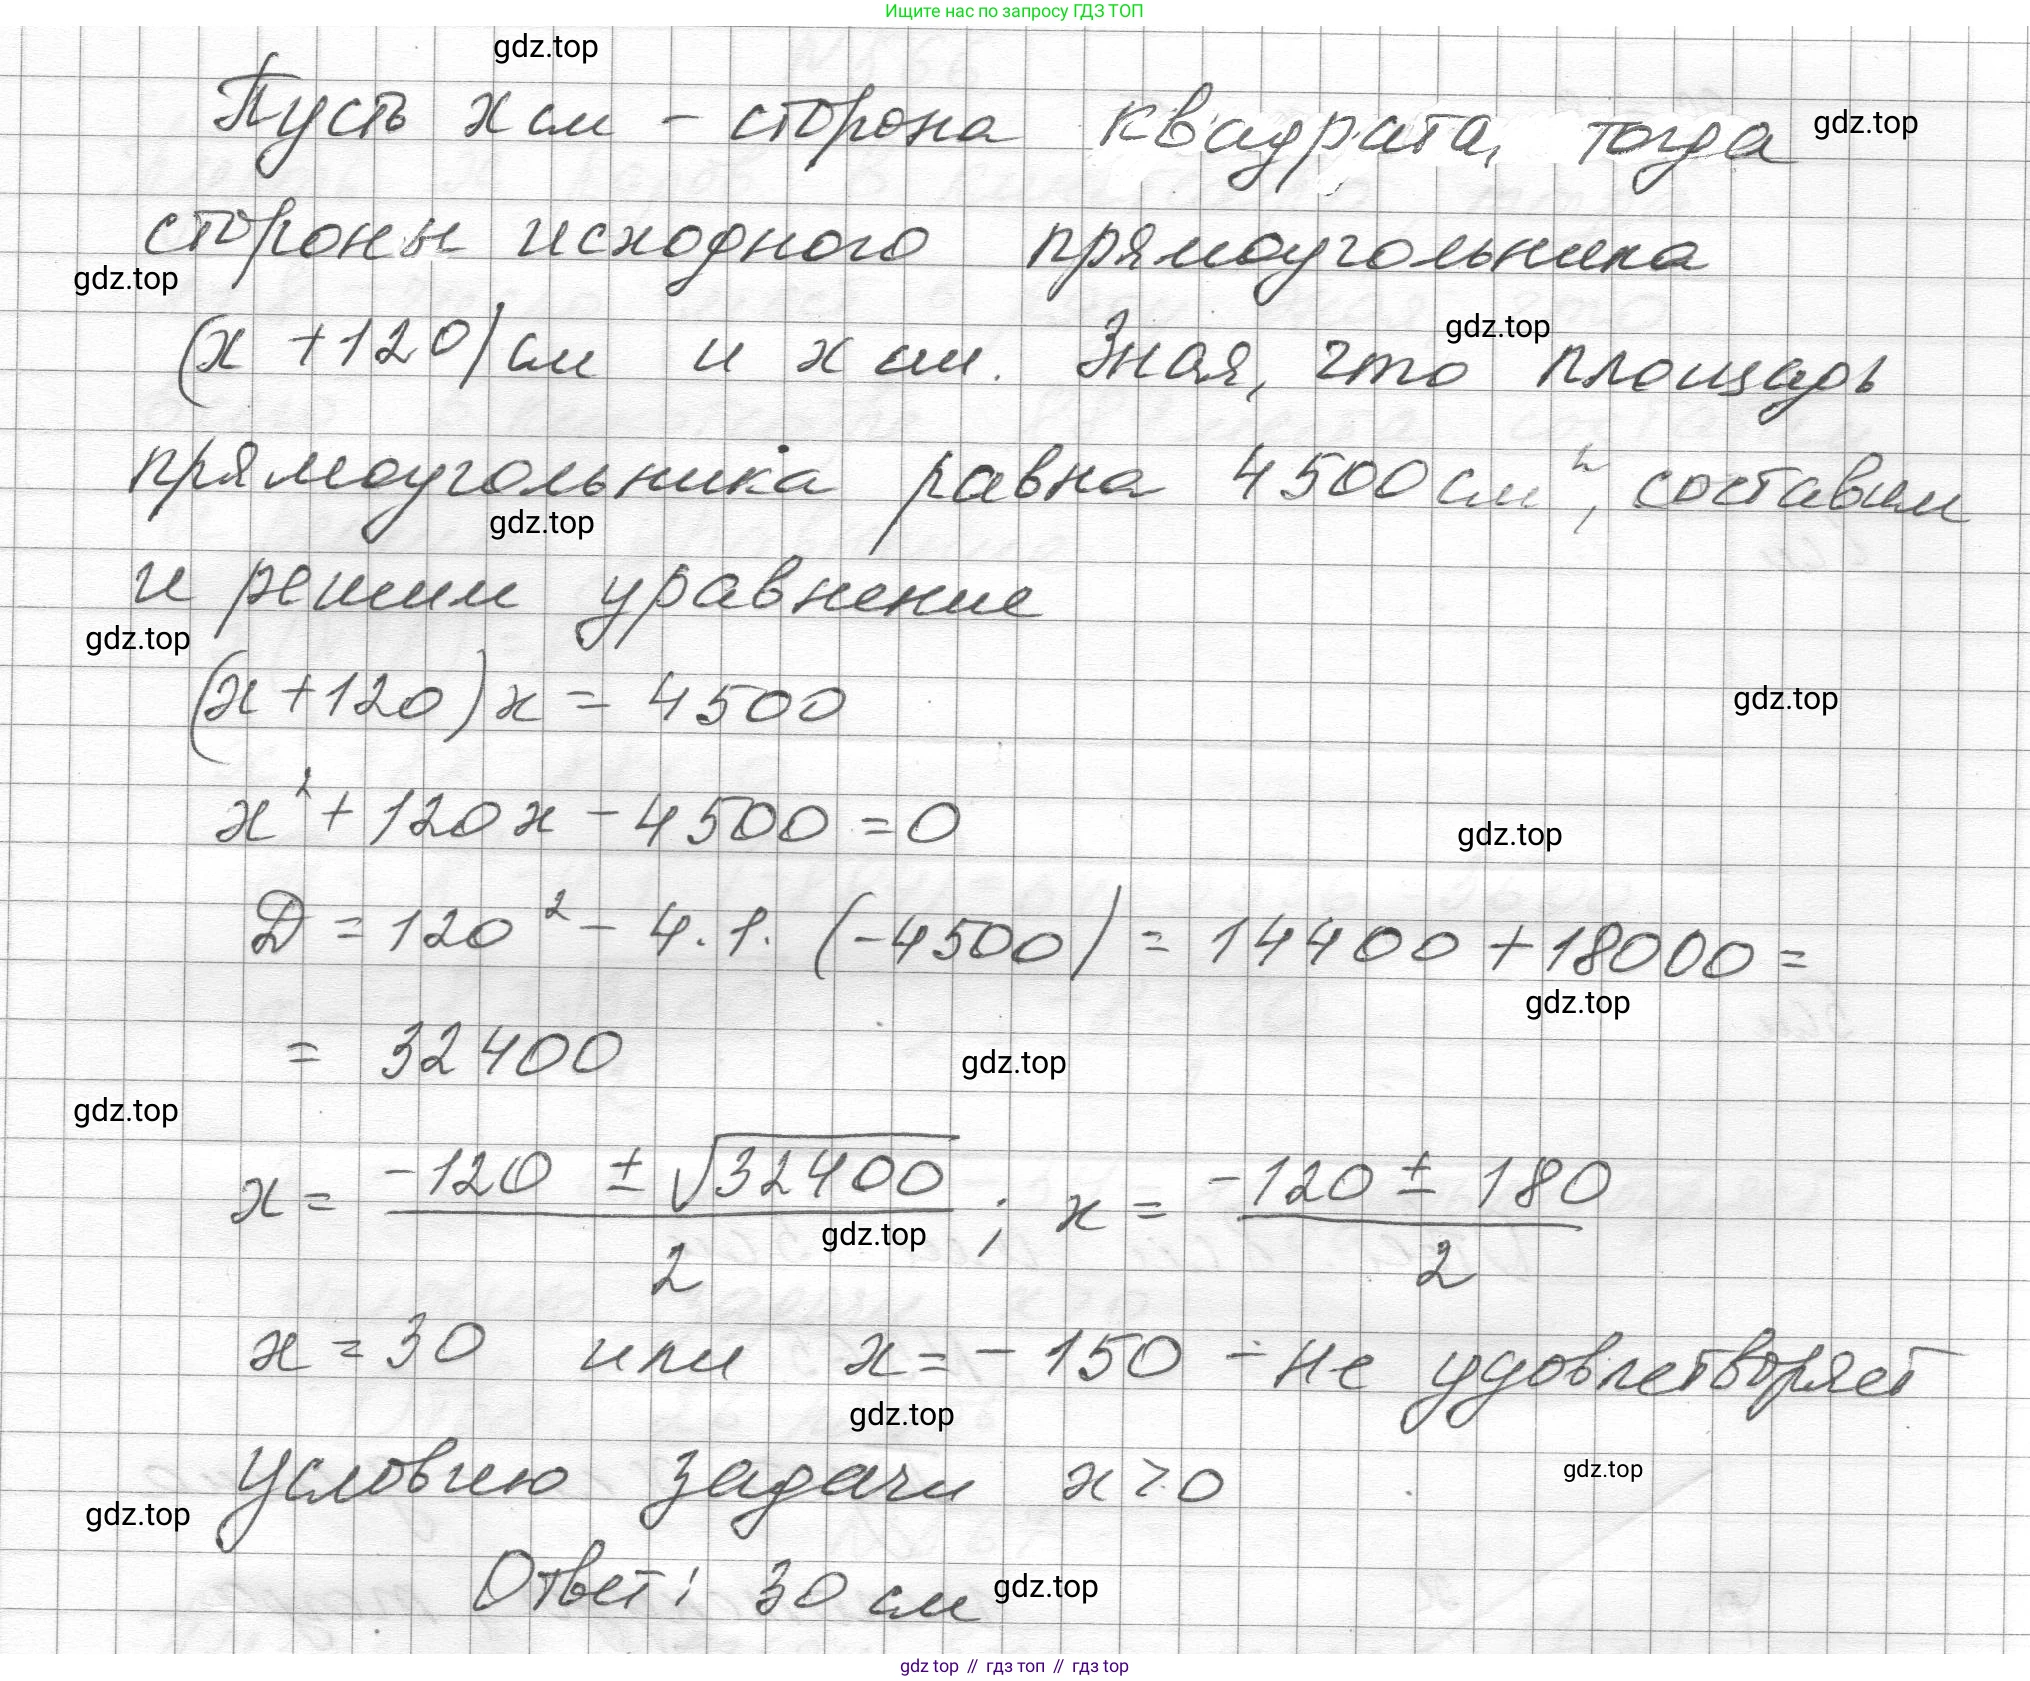 Ищите нас по запросу ГДЗ ТОП
gdz.top
Пусть x см - сторона квадрата, тогда gdz.top
стороны исходного прямоугольника
gdz.top
gdz.top
(x + 120) см и x см. Зная, что площадь
прямоугольника равна 4500 см², составим
gdz.top
и решим уравнение
gdz.top
(x + 120) x = 4500
gdz.top
x² + 120x - 4500 = 0
gdz.top
D = 120² - 4 · 1 · (-4500) = 14400 + 18000 =
gdz.top
= 32400
gdz.top
gdz.top
x = (-120 ± √32400) / 2 ; x = (-120 ± 180) / 2
gdz.top
x = 30 или x = - 150 - не удовлетворяет
gdz.top
условию задачи x > 0
gdz.top
gdz.top
Ответ: 30 см
gdz.top
gdz top // гдз топ // гдз top